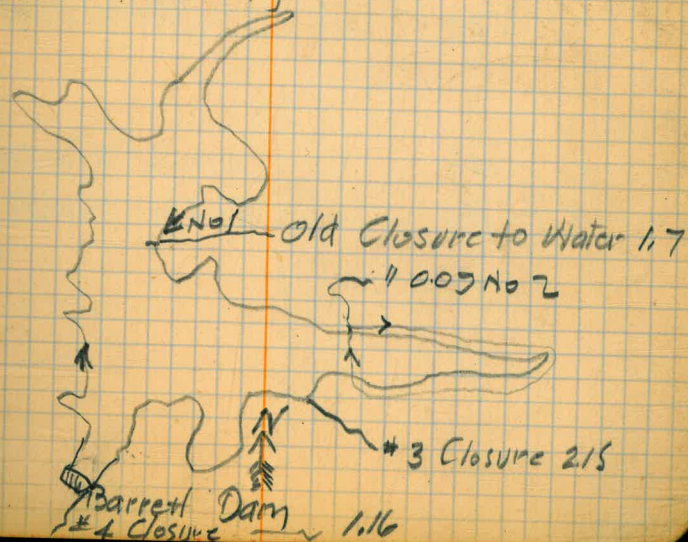 No 1 Old Closure to Water 1.7
" 0.09 No 2
# 3 Closure 2.15
Barrett Dam
# 4 Closure 1.16